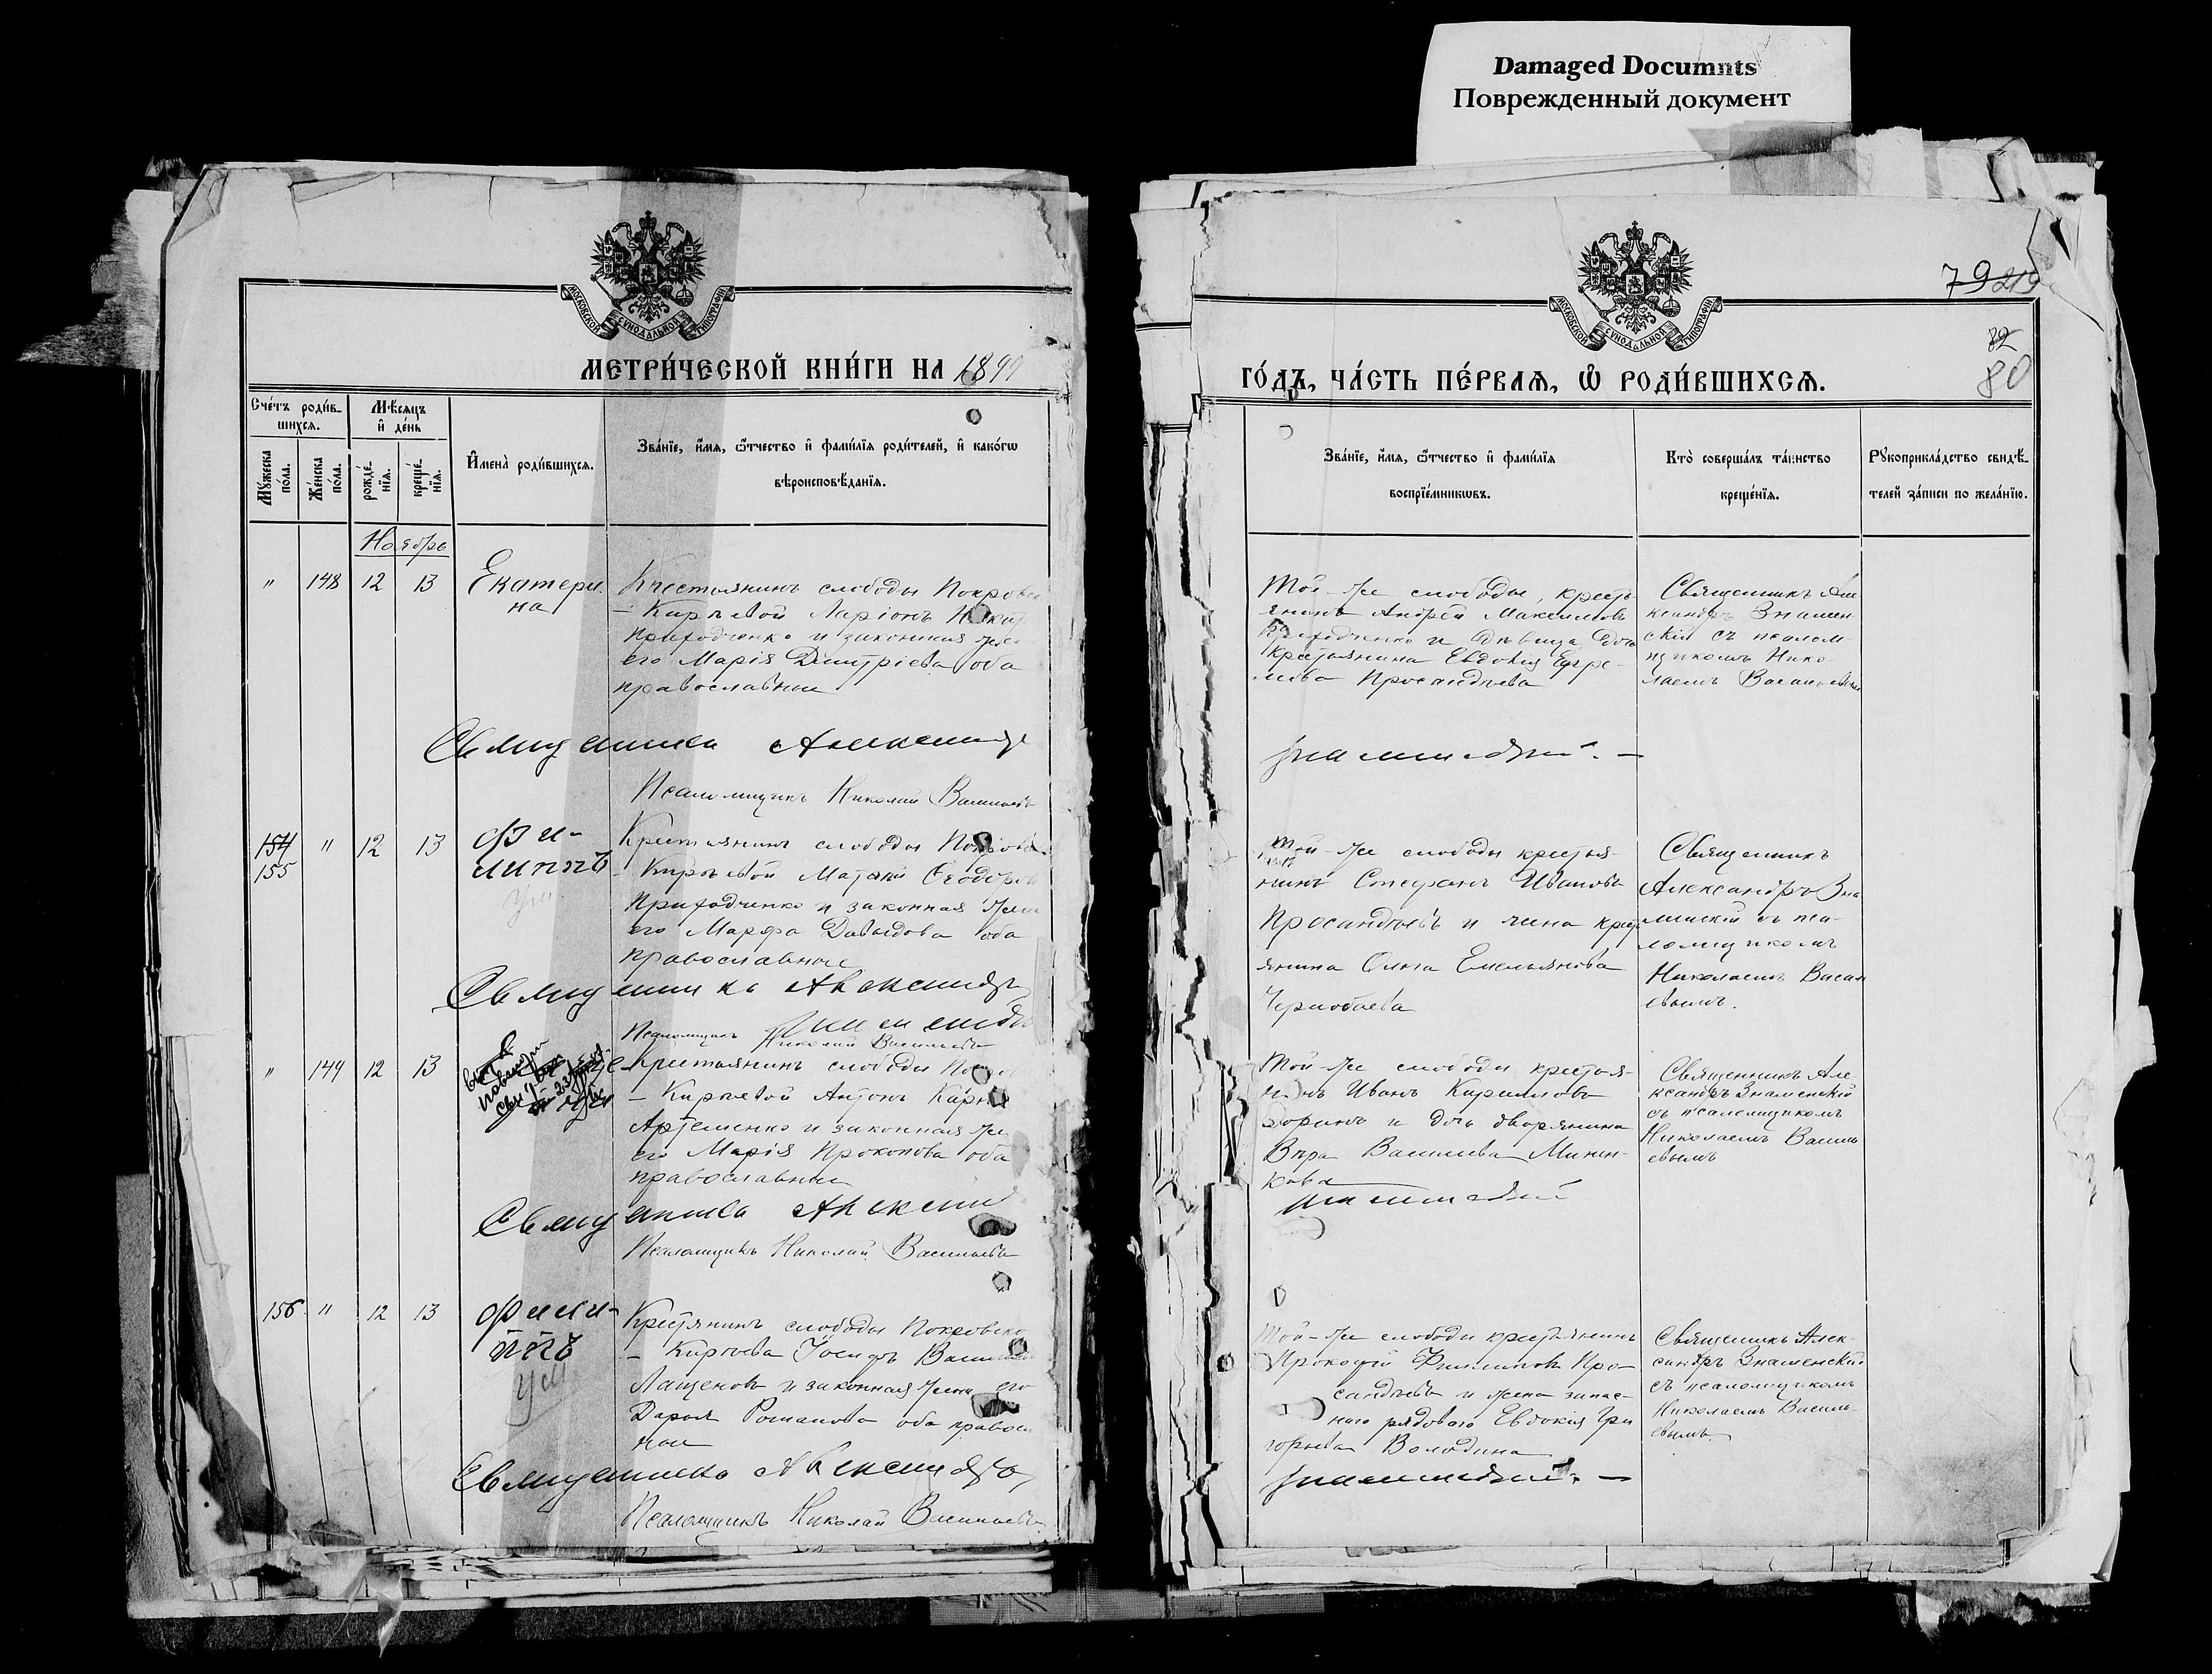 Damaged Documnts
Поврежденный документ
МОСКОВСКОЙ СѴНОДАЛЬНОЙ ТИПОГРАФІИ
МЕТРИ́ЧЕСКОЙ КНИ́ГИ НА 1899
Сче́тъ роди́в-
шихсѧ.
Мѣ́сѧцъ
и҆ де́нь
Мꙋ́жеска
по́ла.
Же́нска
по́ла.
рожде́-
нїѧ.
креще́-
нїѧ.
И҆мена̀ роди́вшихсѧ.
Зва́нїе, и҆́мѧ, ѻ҆́тчество и҆ фами́лїѧ роди́телей, и҆ како́гѡ
вѣроисповѣ́данїѧ.
Ноябрь
" 148 12 13 Екатери-
на
Крестьянинъ слободы Покровск
- Кирѣевой Ларіонъ
Приходченко и законная же
его Марія Димитріева оба
православные
Священникъ Александр
Псаломщикъ Николай Васильевъ
154 " 12 13 Фи-
155 липпъ
ум
Крестьянинъ слободы
- Кирѣевой Ѳеодоров
Приходченко и законная жен
его Марфа Давыдова оба
православные
Священникъ Александръ
Псаломщикъ Николай Васильевъ
" 149 12 13
Крестьянинъ слободы
- Кирѣевой Антонъ
Артеменко и законная же
его Марія Прокопова оба
православные
Священникъ
Псаломщикъ Николай Васильевъ
156 " 12 13 Фили-
ппъ
ум
Крестьянинъ слободы Покровско
- Кирѣева Іосифъ
Лащеновъ и законная жена его
Дарья Романова оба правосл
ные
Священникъ Александръ
Псаломщикъ Николай Васильевъ
79
82
80
МОСКОВСКОЙ СѴНОДАЛЬНОЙ ТИПОГРАФІИ
ГО́ДЪ, ЧА́СТЬ ПЕ́РВАѦ, Ѽ РОДИ́ВШИХСѦ.
Зва́нїе, и҆́мѧ, ѻ҆́тчество и҆ фами́лїѧ
воспрїе́мникѡвъ.
Кто̀ соверша́лъ та́инство
креще́нїѧ.
Рꙋкоприкла́дство свидѣ́-
телей за́писи по жела́нїю.
Той-же слободы, кресть-
янинъ Андрей Максимовъ
Приходченко и дѣвица дочь
крестьянина Евдокія Ефре-
мова Просандѣева
Священникъ Але
ксандръ Знамен-
скій съ псалом-
щикомъ Нико-
лаемъ Васильевымъ
Знаменскій. -
Той-же слободы крестья-
нинъ Стефанъ Ивановъ
Просандѣевъ и жена крест
янина Емельянова
Чернобаева
Священникъ
Александръ Зна
менскій съ пса-
ломщикомъ
Николаемъ Васил
евымъ.
Той-же слободы крестья-
нинъ Иванъ Кирилловъ
Зоринъ и дочь дворянина
Вѣра Васильева Минен-
кова
Священникъ Але-
ксандръ Знаменскій
съ псаломщикомъ
Николаемъ Василь
евымъ
Знаменскій
Той-же слободы крестьянинъ
Прокофій Филиповъ Про-
сандѣевъ и жена запас-
наго рядового Евдокія Гри
горьева Володина
Священникъ Алек-
сандръ Знаменскій
съ псаломщикомъ
Николаемъ Василь-
евымъ.
Знаменскій. -